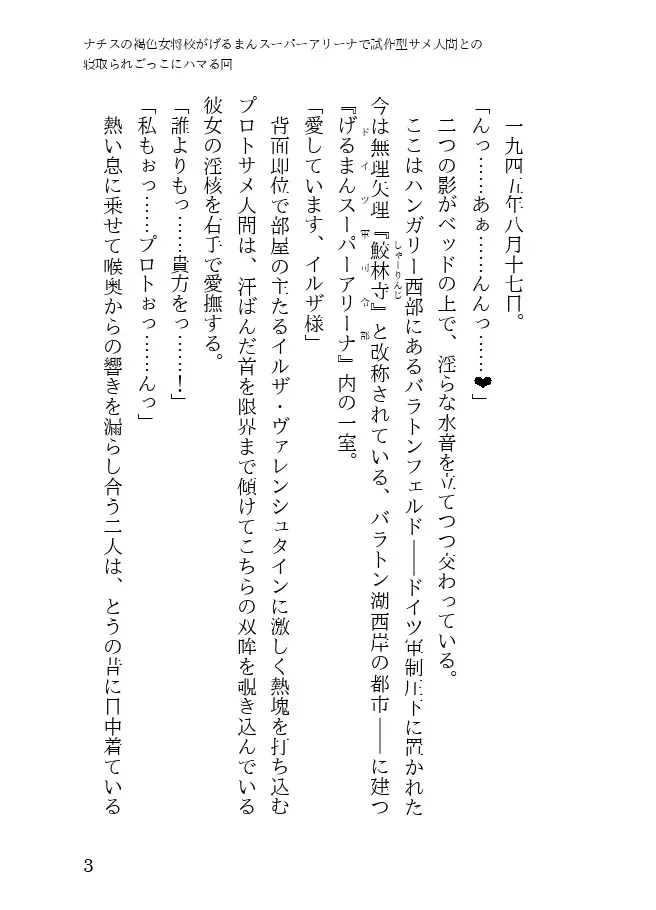 ナチスの褐色女将校がげるまんスーパーアリーナで試作型サメ人間との
寝取られごっこにハマる回
一九四五年八月十七日。
「んっ……あぁ……んんっ……❤」
二つの影がベッドの上で、淫らな水音を立てつつ交わっている。
ここはハンガリー西部にあるバラトンフェルド――ドイツ軍制圧下に置かれた
今は無理矢理『鮫林寺』と改称されている、バラトン湖西岸の都市――に建つ
しゃーりんじ
『げるまんスーパーアリーナ』内の一室。
ドイツ軍司令部
「愛しています、イルザ様」
背面即位で部屋の主たるイルザ・ヴァレンシュタインに激しく熱塊を打ち込む
プロトサメ人間は、汗ばんだ首を限界まで傾けてこちらの双眸を覗き込んでいる
彼女の淫核を右手で愛撫する。
「誰よりもっ……貴方をっ……！」
「私もぉっ……プロトぉっ……んっ」
熱い息に乗せて喉奥からの響きを漏らし合う二人は、とうの昔に日中着ている
3